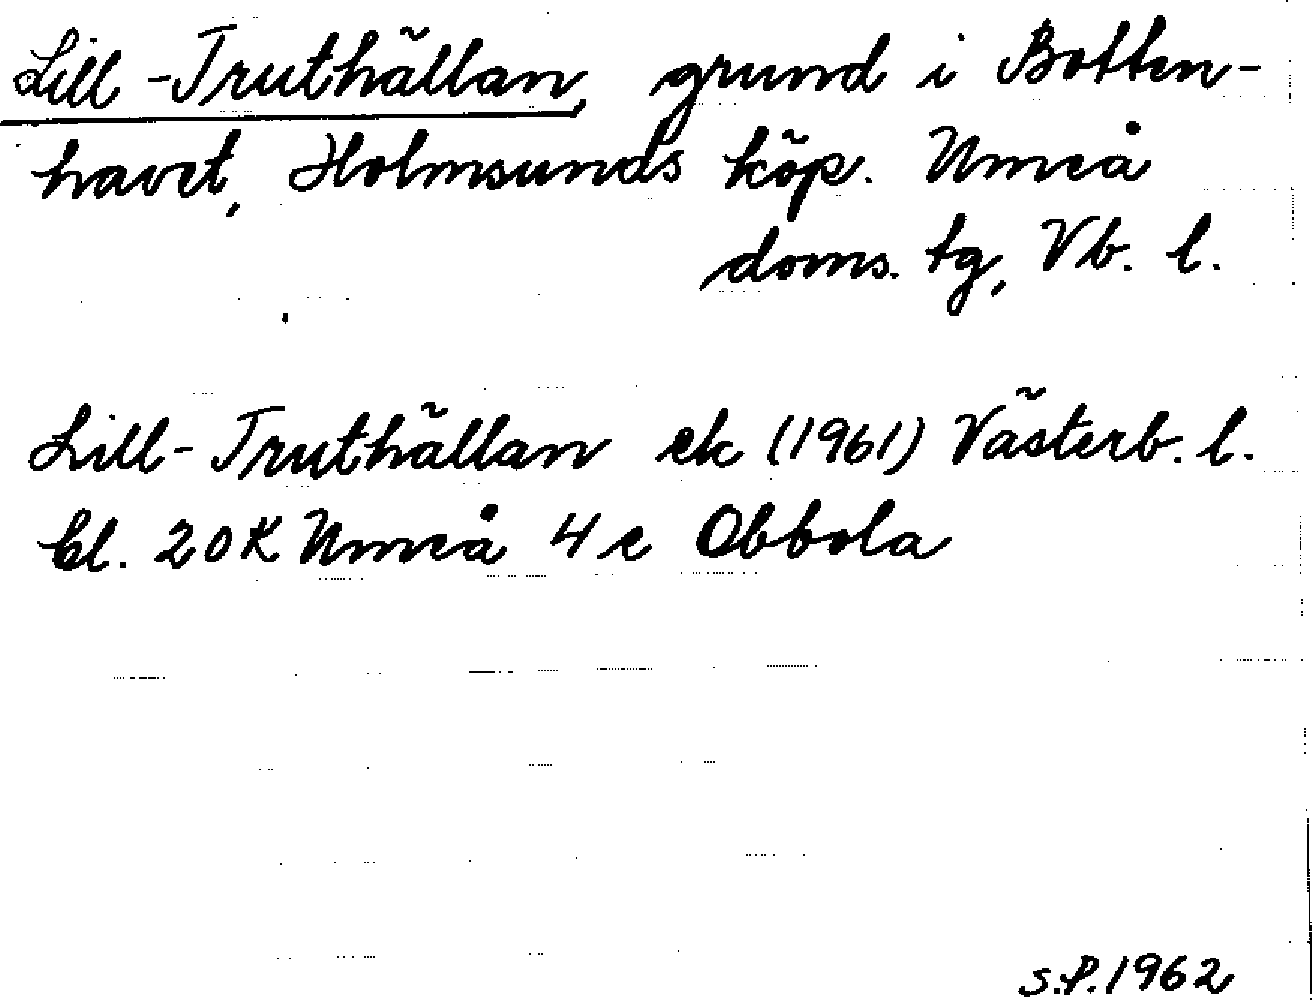 Lill-Truthällan, grund i Botten-
havet, Holmsunds köp. Umeå
doms. tg, Vb. l.
Lill-Truthällan ek (1961) Västerb. l.
bl. 20K Umeå 4 c Obbola
S.P. 1962